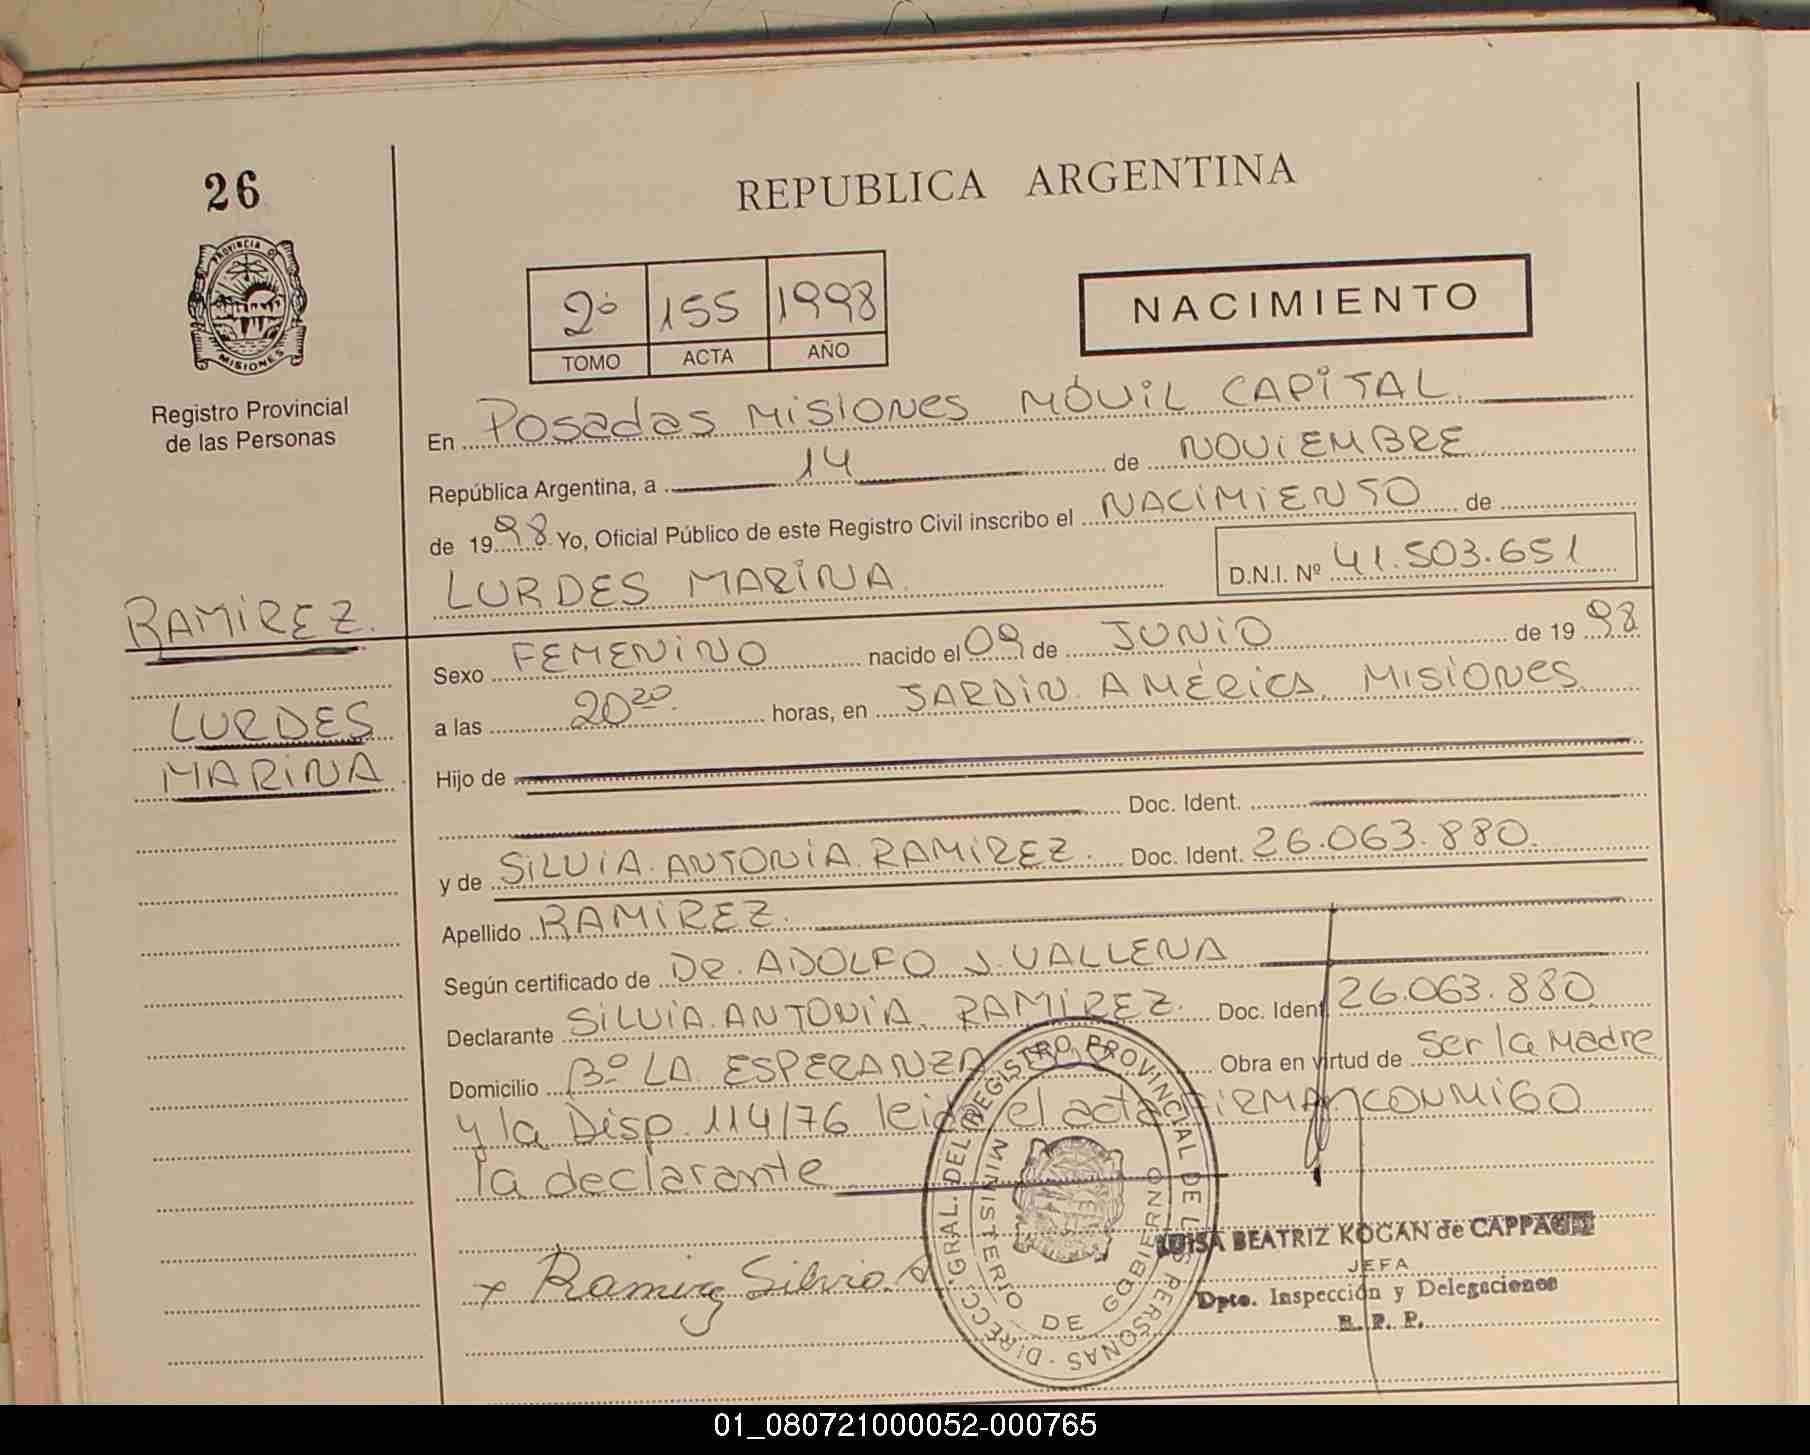 26
REPUBLICA ARGENTINA
PROVINCIA D
MISIONES
Registro Provincial
de las Personas
2º 155 1998
TOMO ACTA AÑO
NACIMIENTO
En POSADAS MISIONES MÓVIL CAPITAL.
República Argentina, a 14 de NOVIEMBRE
de 1998 Yo, Oficial Público de este Registro Civil inscribo el NACIMIENTO de
LURDES MARINA. D.N.I. Nº 41.503.651
RAMIREZ.
LURDES
MARINA.
Sexo FEMENINO nacido el 09 de JUNIO de 1998
a las 20 20. horas, en JARDIN AMÉRICA, MISIONES
Hijo de
Doc. Ident.
y de SILVIA ANTONIA RAMIREZ. Doc. Ident. 26.063.880.
Apellido RAMIREZ.
Según certificado de DR. ADOLFO J. VALLENA
Declarante SILVIA ANTONIA RAMIREZ. Doc. Ident. 26.063.880
Domicilio Bº LA ESPERANZA Obra en virtud de Ser la Madre
y la Disp. 114/76 leida el acta FIRMAN CONMIGO
la declarante
x Ramirez Silvia A
DIRECC. GRAL. DEL REGISTRO PROVINCIAL DE LAS PERSONAS
MINISTERIO DE GOBIERNO
LUISA BEATRIZ KOGAN de
JEFA
Dpto. Inspección y Delegaciones
R. P. P.
01_080721000052-000765